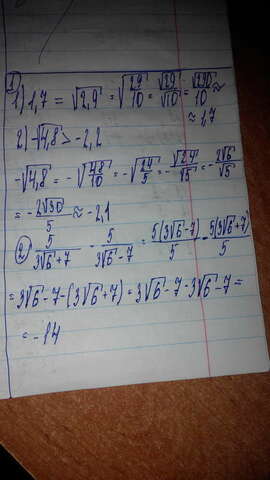 ①
1) 1,7 = √2,9 = √(29/10) = √29/√10 = √290/10 ≈
≈ 1,7
2) -√4,8 > -2,2
-√4,8 = -√(48/10) = -√(24/5) = -√24/√5 = -2√6/√5
= -2√30/5 ≈ -2,1
② 5/(3√6+7) - 5/(3√6-7) = 5(3√6-7)/5 - 5(3√6+7)/5
= 3√6-7-(3√6+7) = 3√6-7-3√6-7 =
= -14